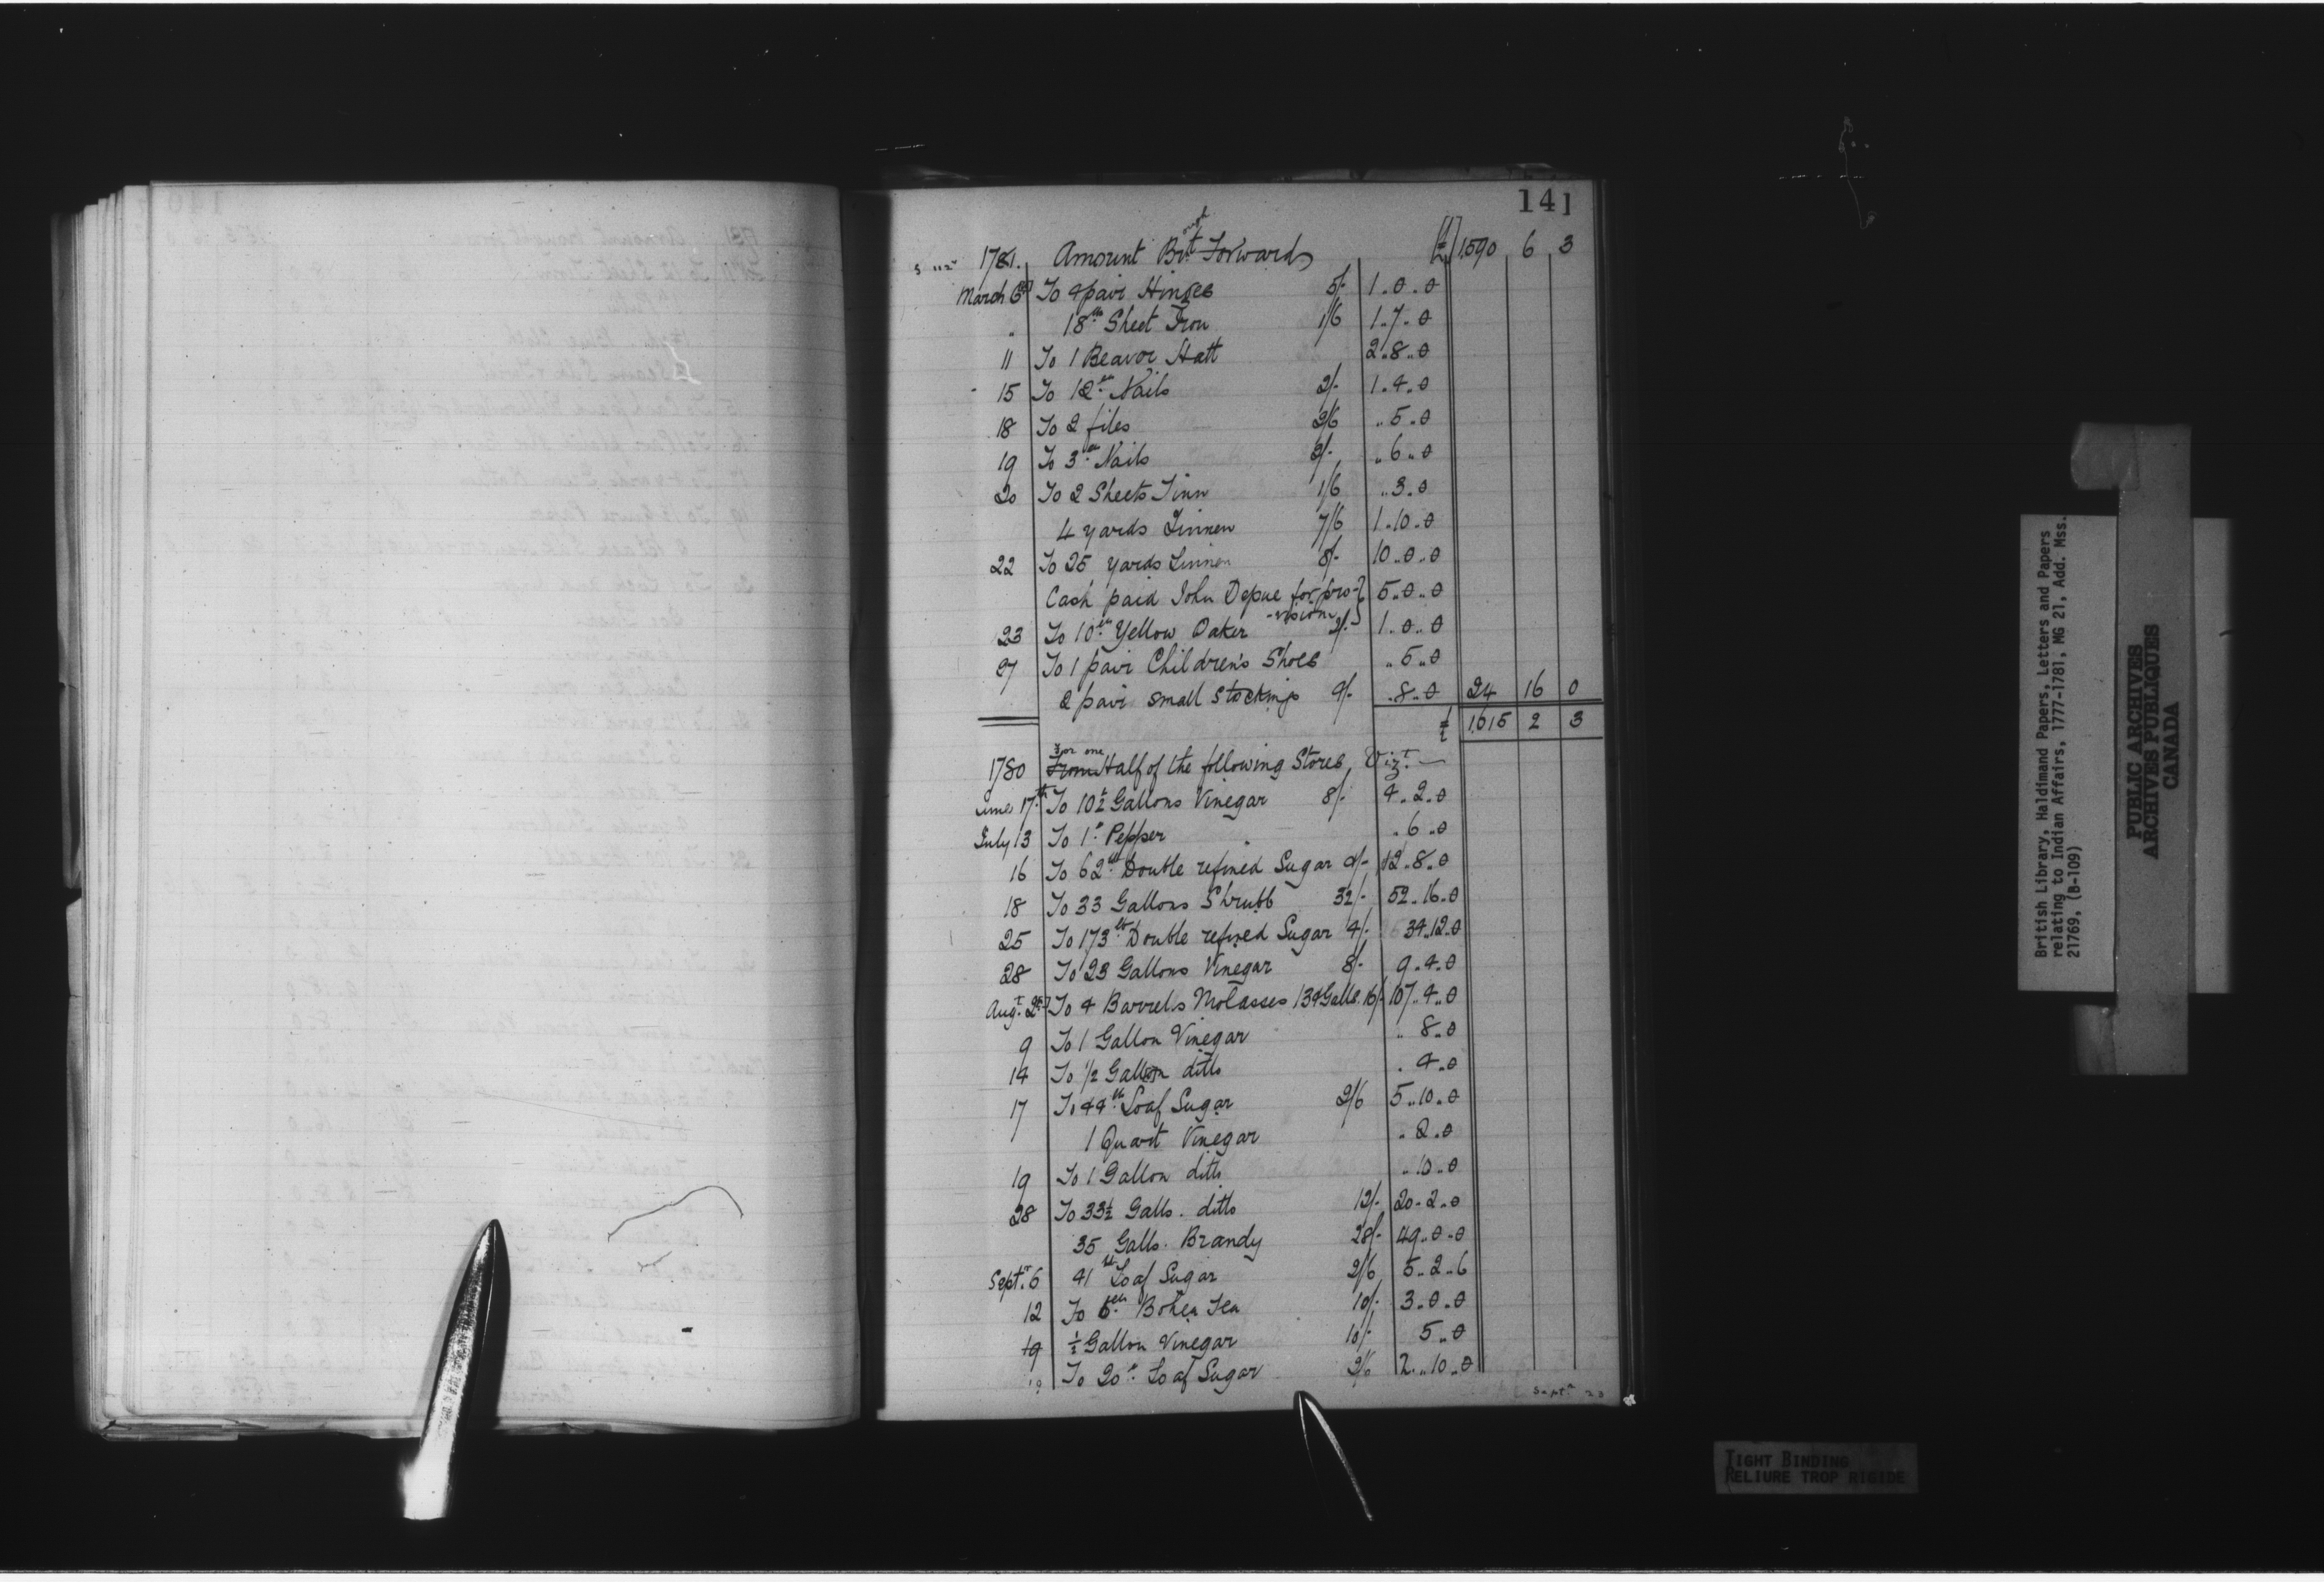 141
1781. Amount Brot Forwards [£] 1,590 6 3
March 6th To 4 pair Hinges 5/- 1..0..0
" 18lb Sheet Iron 1/6 1..7..0
11 To 1 Beavor Hatt 2..8..0
15 To 12lb Nails 2/- 1..4..0
18 To 2 files 2/6 ..5..0
19 To 3lb Nails 2/- ..6..0
20 To 2 Sheets Tinn 1/6 ..3..0
4 yards Linnen 7/6 1..10..0
22 To 25 yards Linnen 8/- 10..0..0
Cash paid John Depue for pro-
-visions 5..0..0
23 To 10lb Yellow Oaker 2/- 1..0..0
27 To 1 pair Children's Shoes ..5..0
2 pair small Stockings 4/- ..8..0 24 16 0
£ 1,615 2 3
1780 For one Half of the following Stores, Vizt.—
June 17th To 10½ Gallons Vinegar 8/- 4..2..0
July 13 To 1lb Pepper ..6..0
16 To 62lb Double refined Sugar 4/- 12..8..0
18 To 33 Gallons Shrubb 32/- 52..16..0
25 To 173lb Double refined Sugar 4/- 34..12..0
28 To 23 Gallons Vinegar 8/- 9..4..0
Augt. 2d To 4 Barrels Molasses 134 Galls. 16/- 107..4..0
9 To 1 Gallon Vinegar ..8..0
14 To 1/2 Gallon ditto ..4..0
17 To 44lb Loaf Sugar 2/6 5..10..0
1 Quart Vinegar ..2..0
19 To 1 Gallon ditto ..10..0
28 To 33½ Galls. ditto 12/- 20..2..0
35 Galls. Brandy 28/- 49..0..0
Septr. 6 41lb Loaf Sugar 2/6 5..2..6
12 To 6lb Bohea Tea 10/- 3..0..0
19 ½ Gallon Vinegar 10/- 5..0
19 To 20lb Loaf Sugar 2/6 2..10..0
Septr 23
British Library, Haldimand Papers, Letters and Papers
relating to Indian Affairs, 1777-1781, MG 21, Add. Mss.
21769, (B-109)
PUBLIC ARCHIVES
ARCHIVES PUBLIQUES
CANADA
TIGHT BINDING
RELIURE TROP RIGIDE